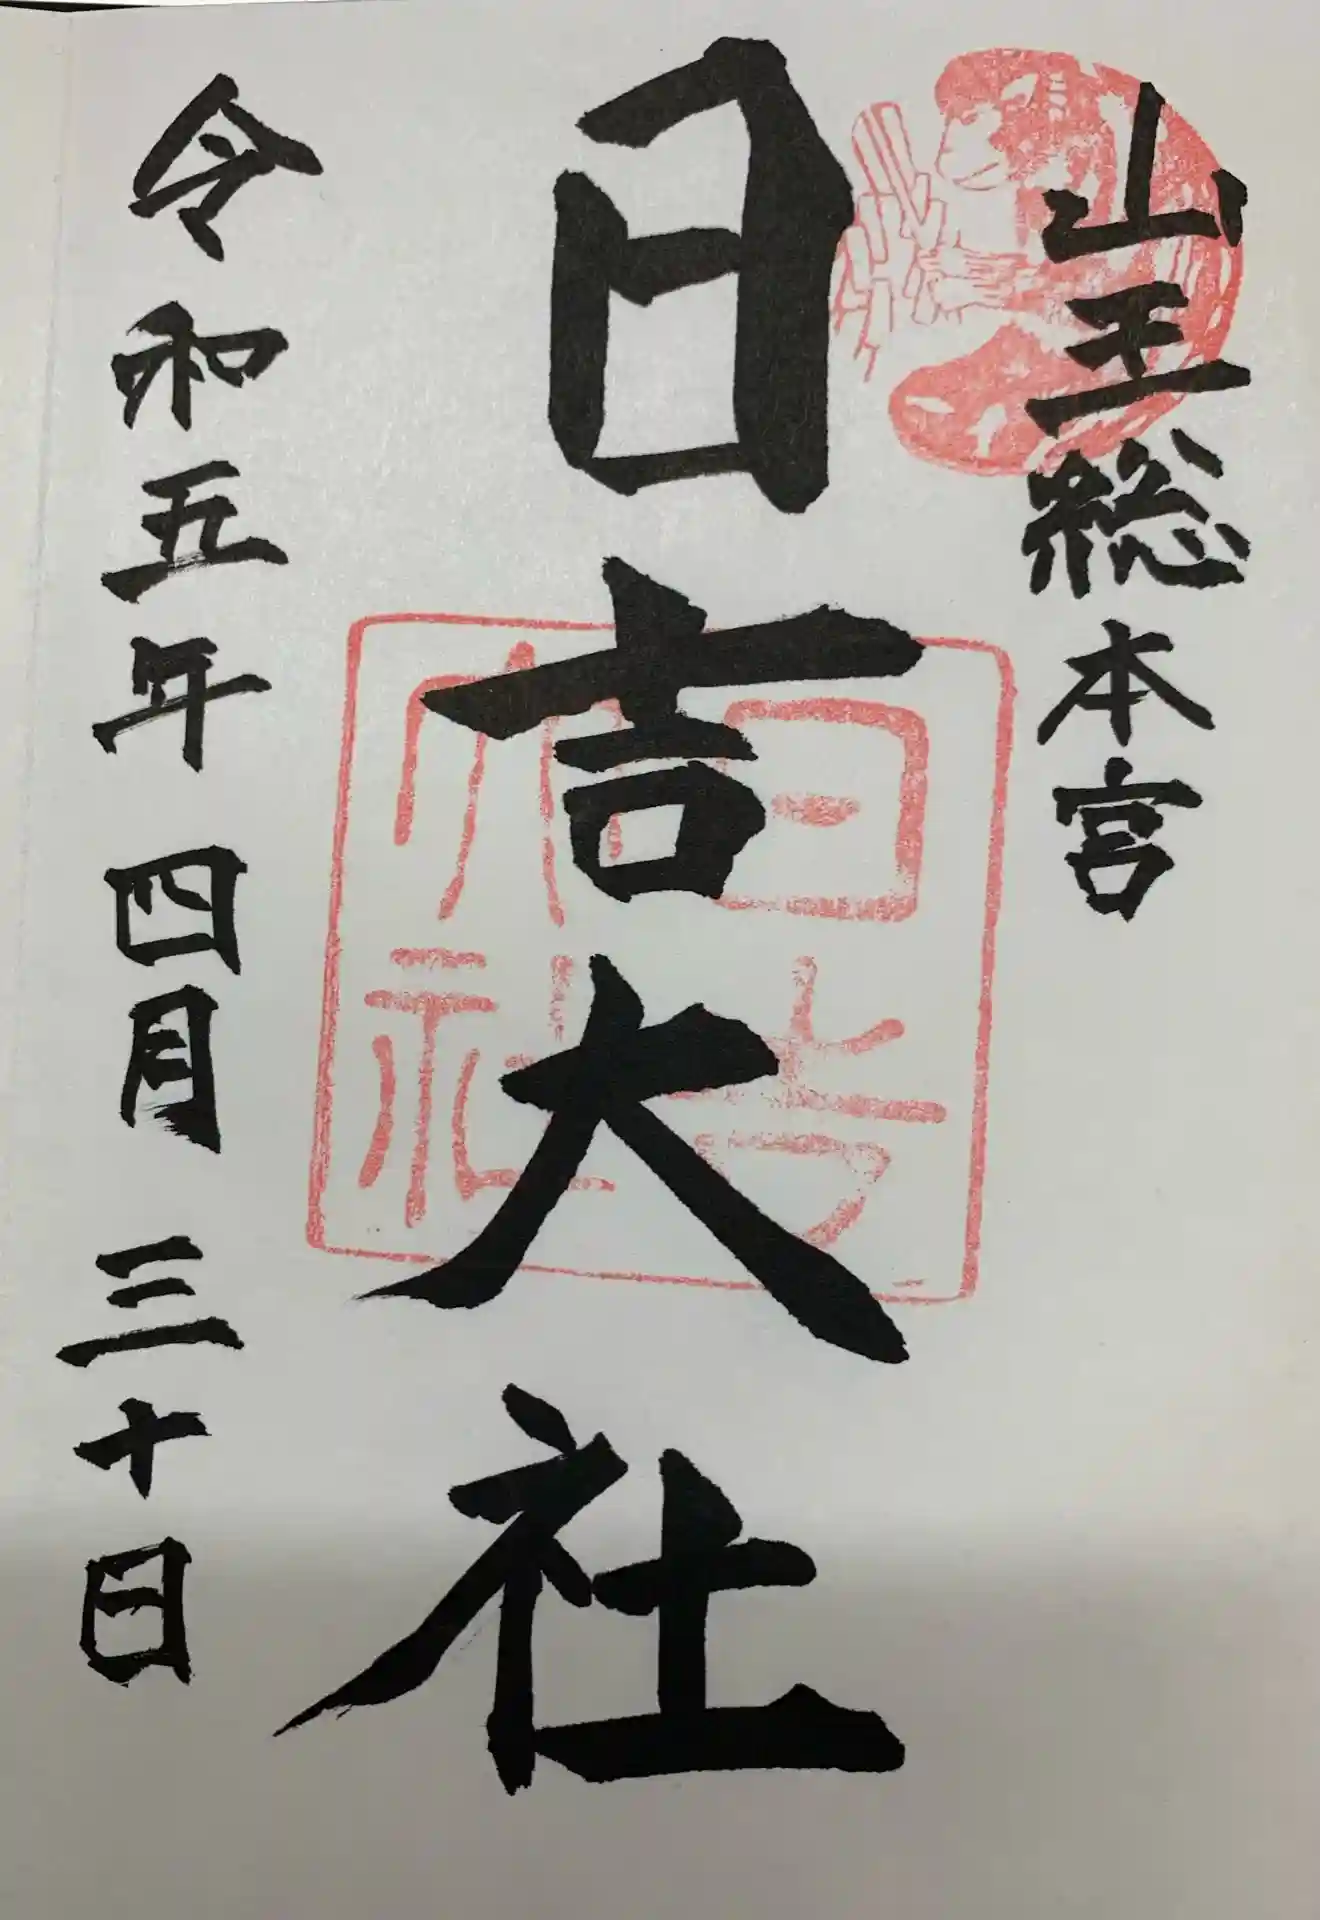 山王総本宮
日吉大社
日吉
大社
令和五年四月三十日